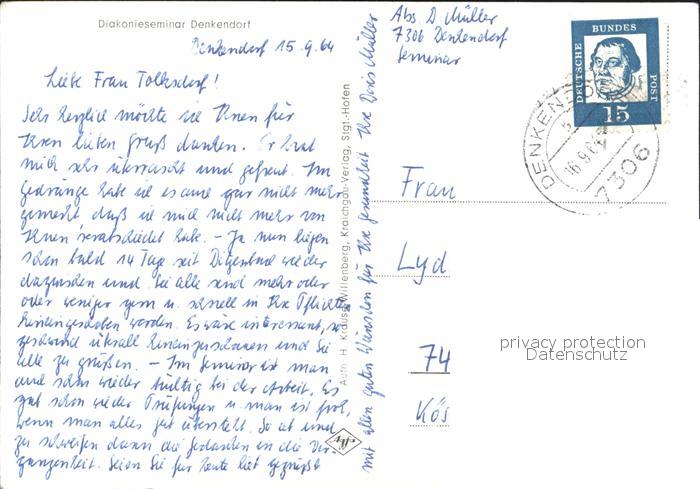 Diakonieseminar Denkendorf
Denkendorf 15.9.64
Liebe Frau Tolksdorf!
Sehr herzlich möchte ich Ihnen für
Ihren lieben Gruß danken. Er hat
mich sehr überrascht und gefreut. Im
Gedränge habe ich es am gar nicht mehr
gemerkt daß ich mich nicht mehr von
Ihnen verabschiedet habe. – Ja nun liegen
schon bald 14 Tage seit wieder
dazwischen und Sie alle sind mehr oder
oder weniger gern u. schnell in Ihre Pflichten
hineingeschoben worden. Es wäre interessant, so
geschwind überall hineinzuschauen und Sie
alle zu grüßen. – Im Seminar ist man
auch schon wieder tüchtig bei der Arbeit. Es
gab schon wieder Prüfungen u. man ist froh,
wenn man alles gut übersteht. So ab und
zu schweifen dann die Gedanken in die Ver-
gangenheit. Seien Sie für heute lieb gegrüßt
mit allen guten Wünschen für Ihre Gesundheit Ihre Doris Müller
Autn. H. Krauss-Willenberg, Kraichgau-Verlag, Stgt.-Hofen
Abs. D. Müller
7306 Denkendorf
Seminar
DEUTSCHE BUNDES POST
15
DENKENDORF
16.9.64
7306
Frau
Lyd
74
Kös
privacy protection
Datenschutz